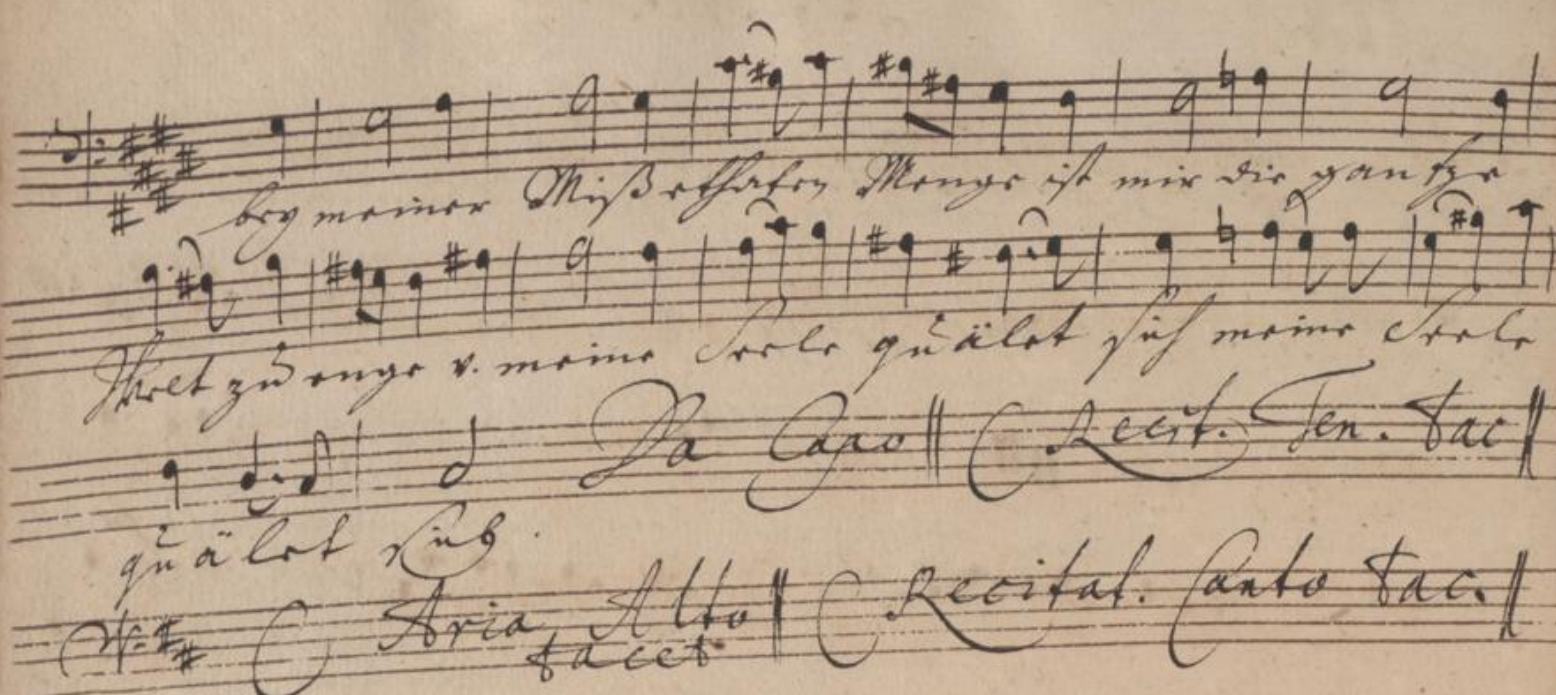 bey meiner Mißethaten Menge ist mir die gantze
Welt zu enge v. meine Seele quälet sich meine Seele
Da Capo Recit. Ten. tac
quälet sich.
Aria Alto Recitat. Canto tac.
tacet